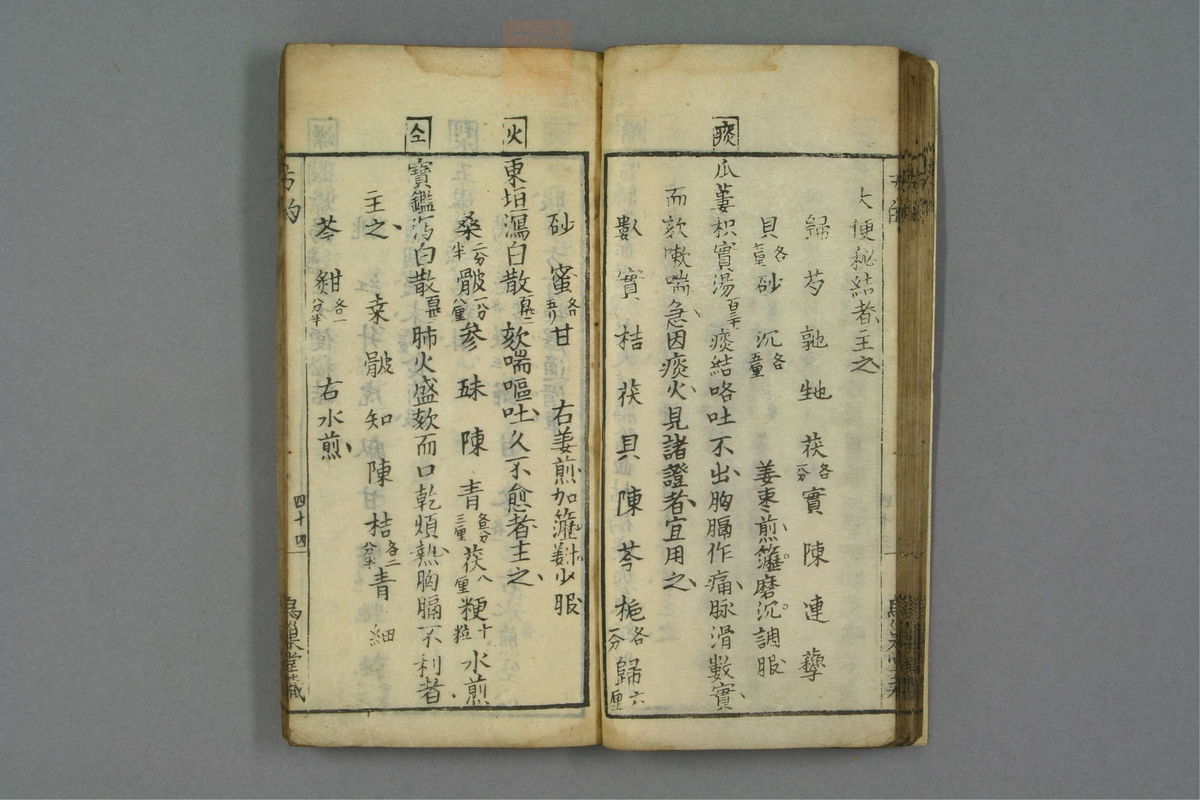 大便秘結者主之
歸 芍 乾 地 茯 各一分 實 陳 連 蘗
貝 各七厘 砂 沉 各五厘 姜枣煎籮磨沉調服
痰
瓜蔞枳實湯 痰結咯吐不出胸膈作痛脉滑數實
而欬嗽喘急因痰火見諸證者宜用之
數 實 桔 茯 貝 陳 芩 栀 各一分 歸 六厘
砂 蜜 各五リ 甘 右姜煎加籮姜汁少服
火
東垣瀉白散 欬喘嘔吐久不愈者主之
桑 二分半 骰 一分八厘 参 味 陳 青 各五分三厘 茯 八厘 粳 十粒 水煎
仝
寶鑑瀉白散 肺火盛欬而口乾煩熱胸膈不利者
主之 桒 骰 知 陳 桔 各二分半 青 細
芩 甜 各一分半 右水煎
四十四
烏巢堂藏